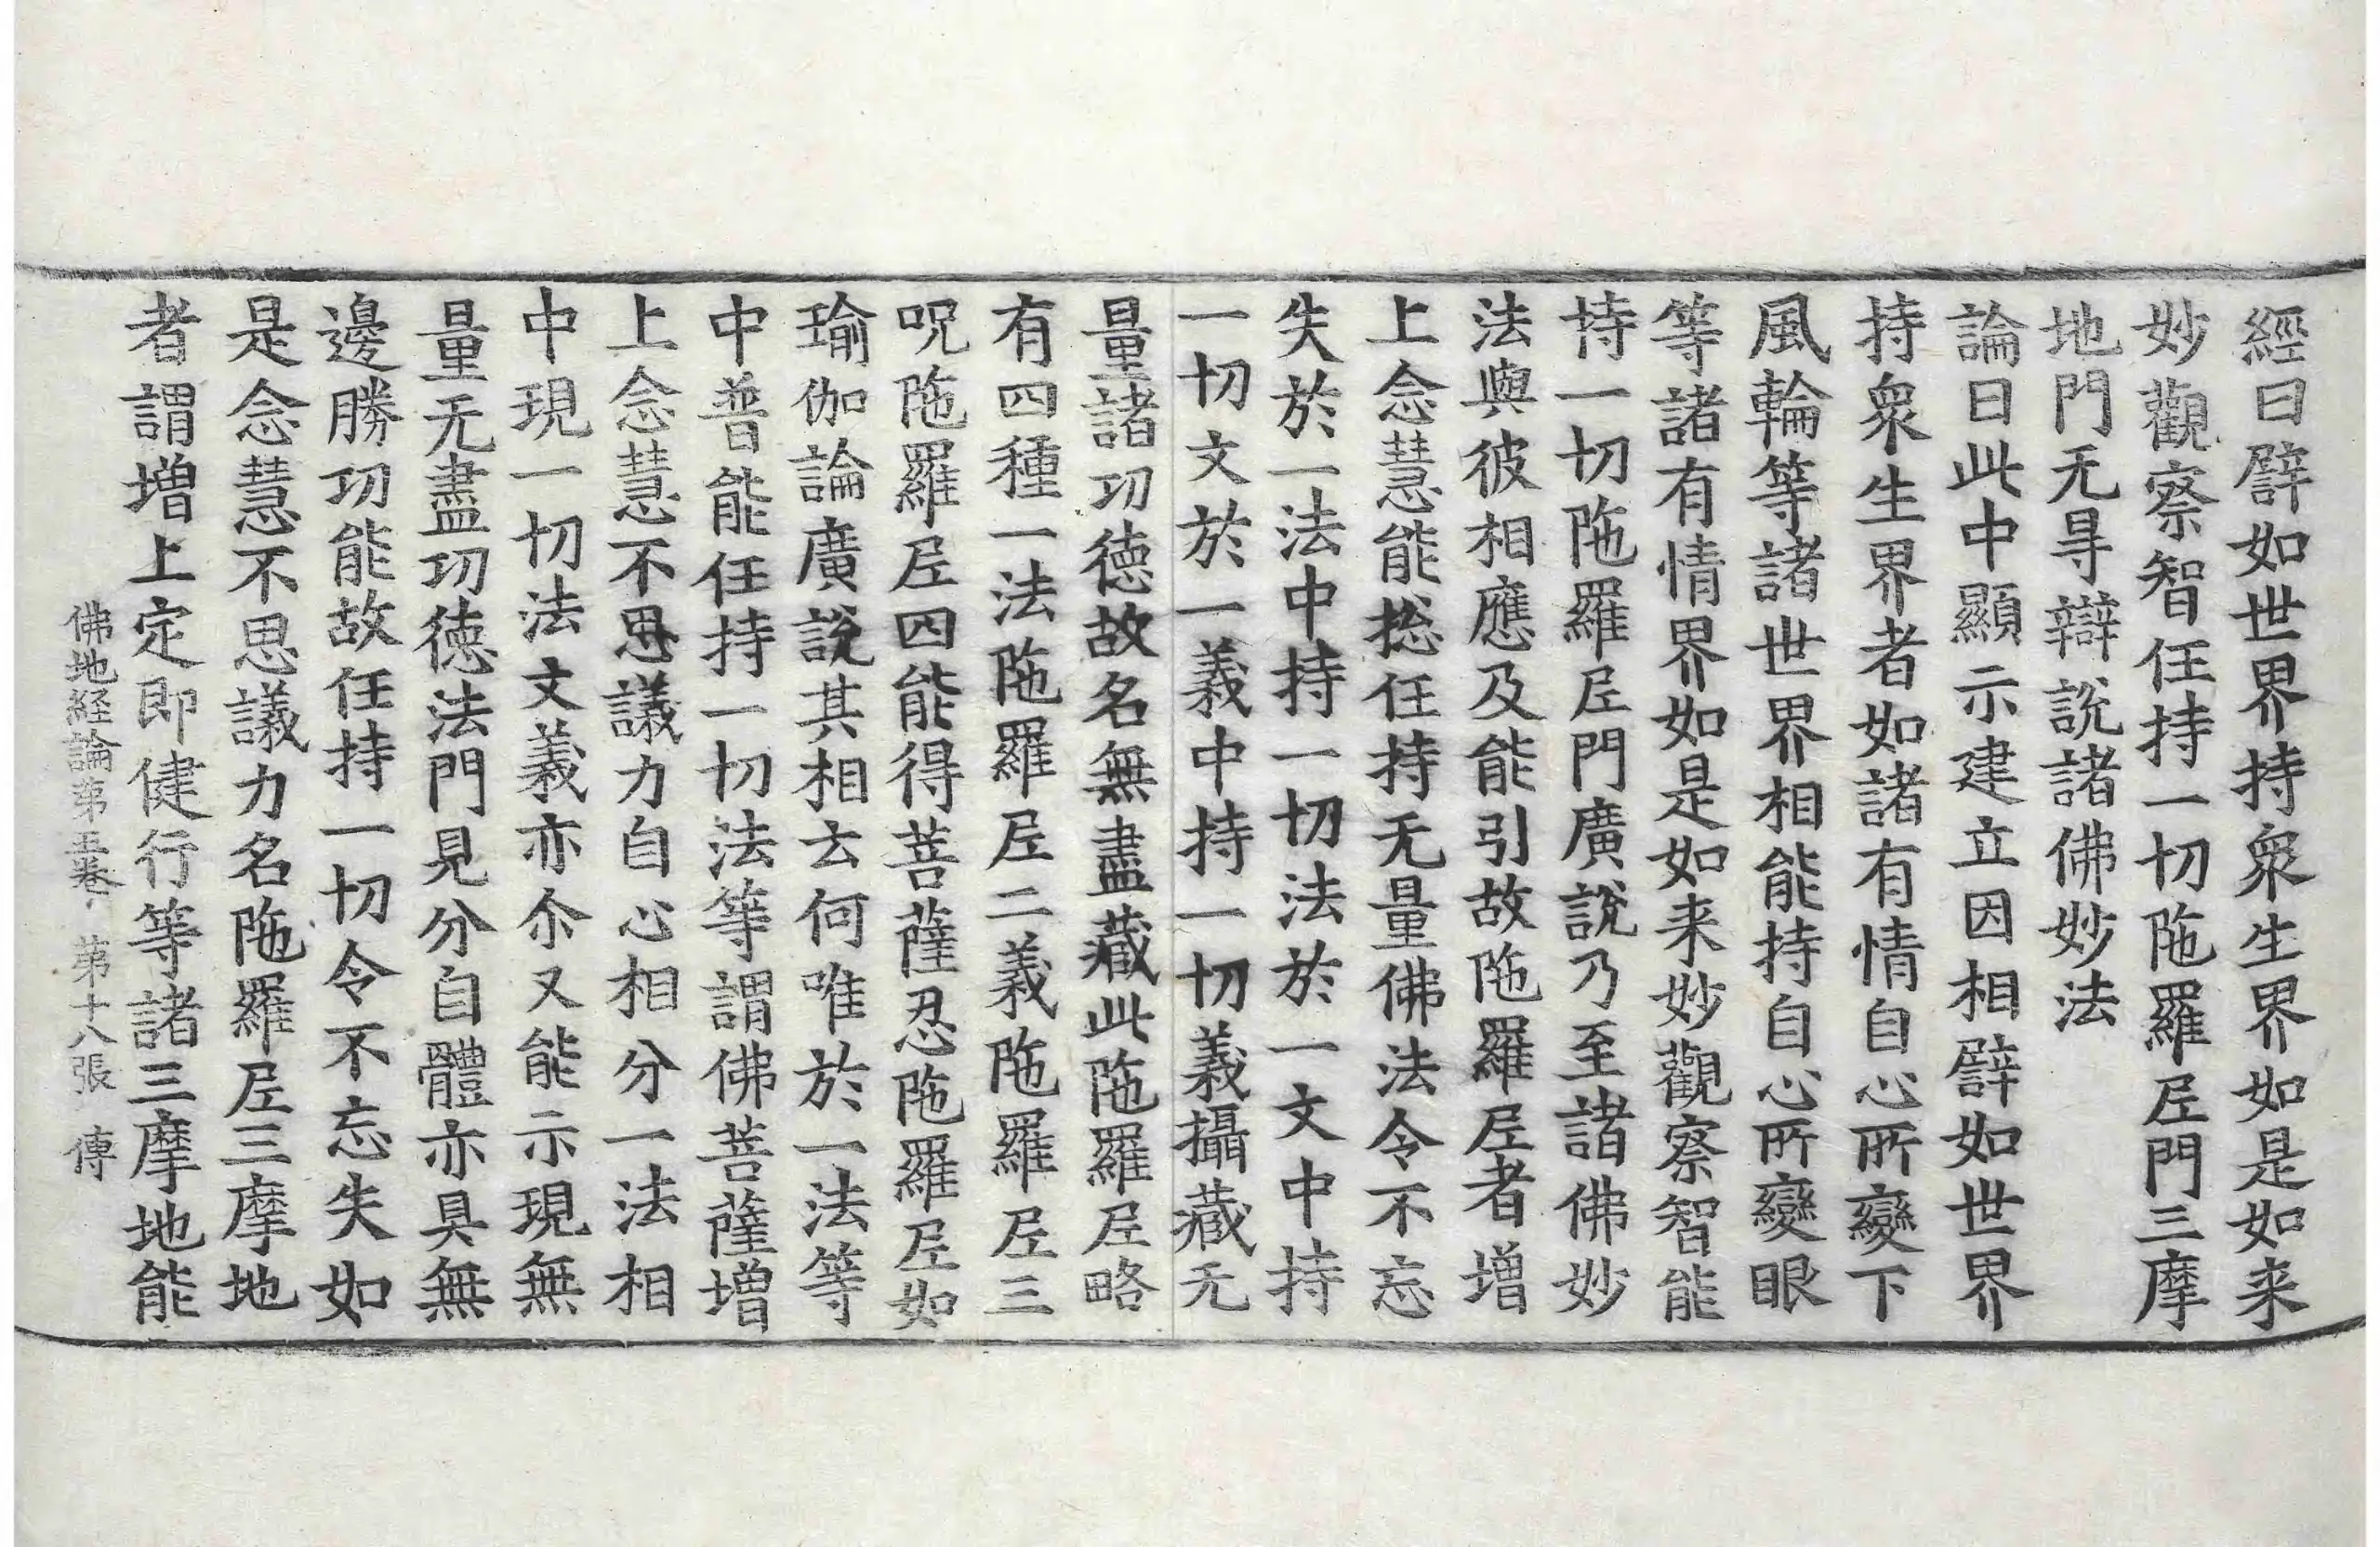 經曰譬如世界持衆生界如是如来
妙觀察智任持一切陁羅𡰱門三摩
地門无㝵辯說諸佛妙法
論曰此中顯示建立因相譬如世界
持衆生界者如諸有情自心所變下
風輪等諸世界相能持自心所變眼
等諸有情界如是如来妙觀察智能
持一切陁羅𡰱門廣說乃至諸佛妙
法與彼相應及能引故陁羅𡰱者增
上念慧能捴任持无量佛法令不忘
失於一法中持一切法於一文中持
一切文於一義中持一切義攝藏无
量諸功德故名無盡藏此陁羅𡰱略
有四種一法陁羅𡰱二義陁羅𡰱三
呪陁羅𡰱四能得菩薩忍陁羅𡰱如
瑜伽論廣說其相云何唯於一法等
中普能任持一切法等謂佛菩薩增
上念慧不思議力自心相分一法相
中現一切法文義亦尒又能示現無
量无盡功德法門見分自體亦具無
邊勝功能故任持一切令不忘失如
是念慧不思議力名陁羅𡰱三摩地
者謂增上定即健行等諸三摩地能
佛地経論第五卷 第十八張 傳